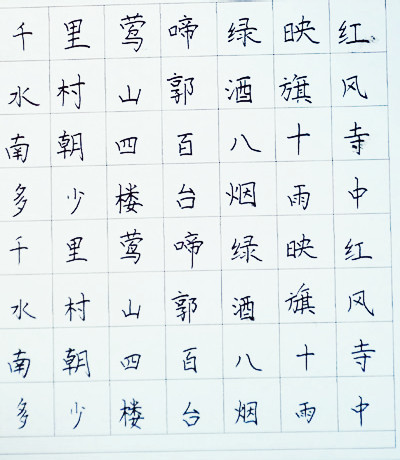 千里莺啼绿映红
水村山郭酒旗风
南朝四百八十寺
多少楼台烟雨中
千里莺啼绿映红
水村山郭酒旗风
南朝四百八十寺
多少楼台烟雨中